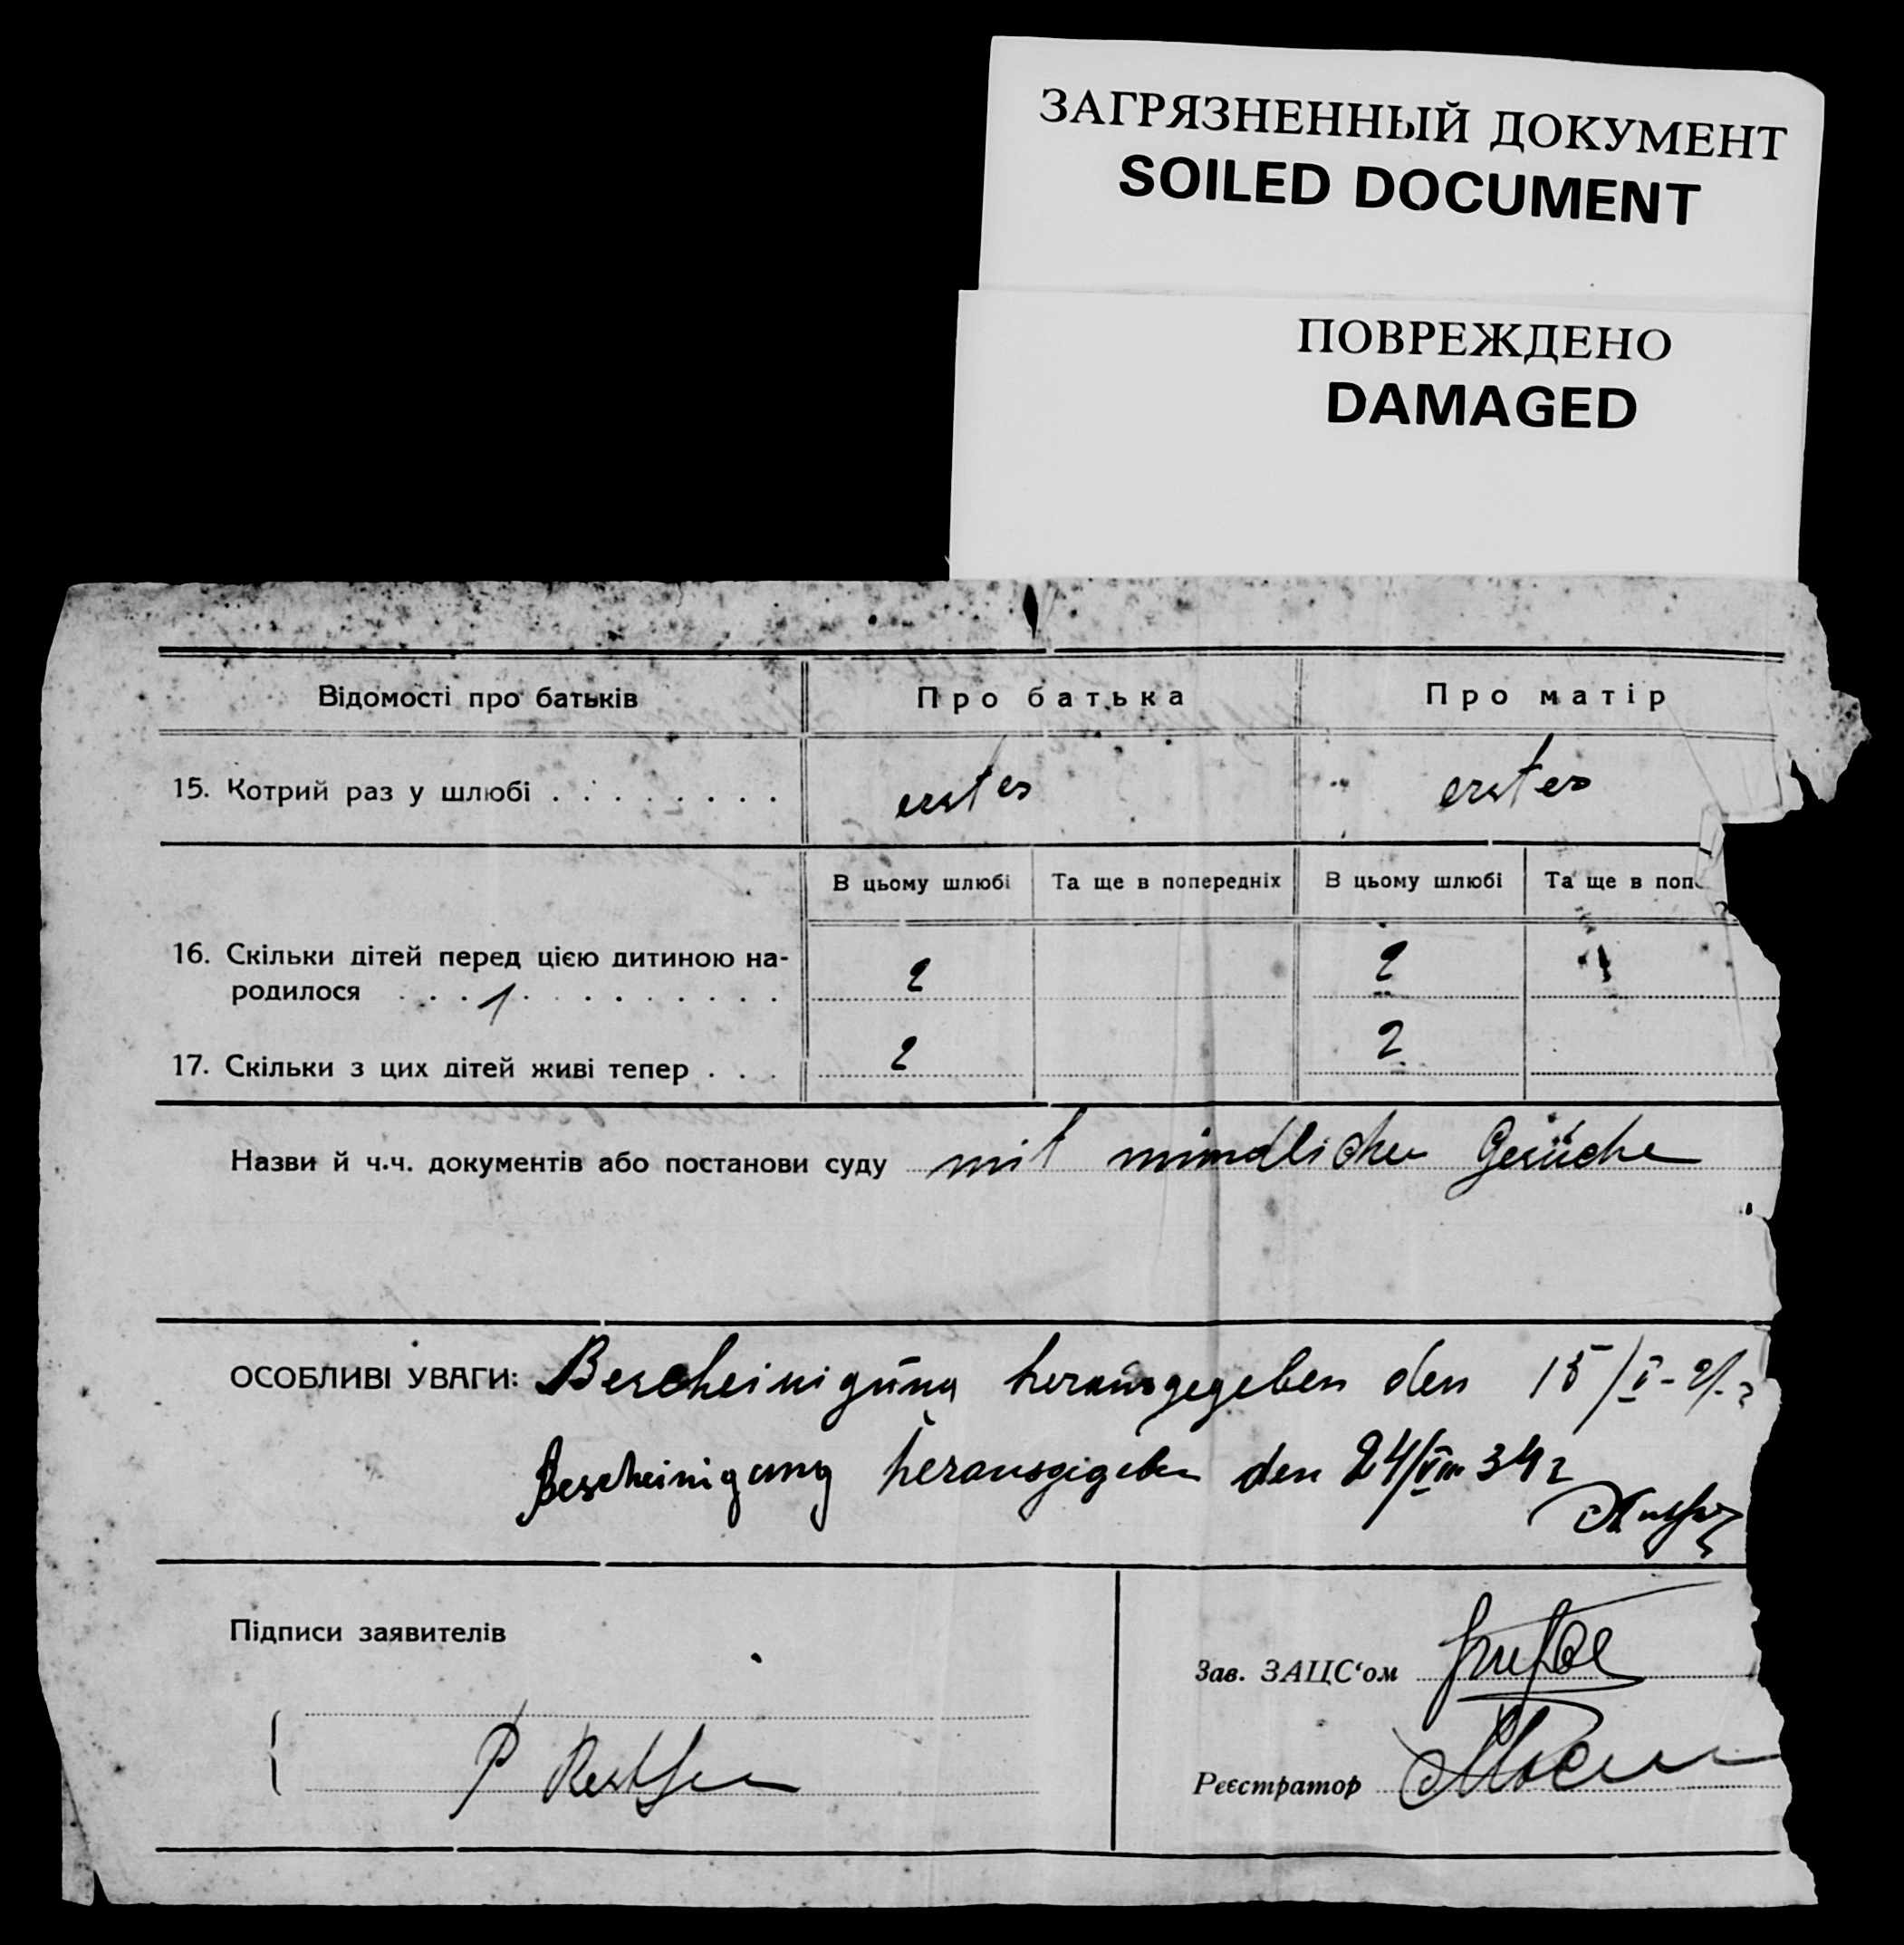 ЗАГРЯЗНЕННЫЙ ДОКУМЕНТ
SOILED DOCUMENT
ПОВРЕЖДЕНО
DAMAGED
Відомості про батьків Про батька Про матір
15. Котрий раз у шлюбі . . . . . . . . erstes erstes
В цьому шлюбі Та ще в попередніх В цьому шлюбі Та ще в поп
16. Скільки дітей перед цією дитиною на-
родилося . . . 1 . . . . . . . . . 2 2
17. Скільки з цих дітей живі тепер . . . 2 2
Назви й ч.ч. документів або постанови суду mit mündlicher Gesüche
ОСОБЛИВІ УВАГИ: Bescheinigūng heraūsgegeben den 15/
Bescheinigung herausgigeben den 24/VIII 34 г
Підписи заявителів
Зав. ЗАЦС‘ом
P
Реєстратор